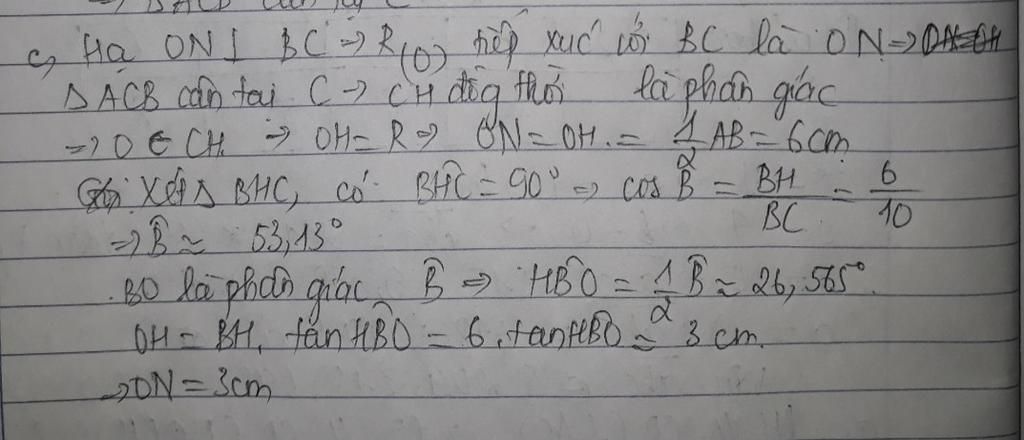 ⇒ ΔACB cân tại C
c, Hạ ON ⊥ BC ⇒ R(O) tiếp xúc với BC là ON ⇒
ΔACB cân tại C → CH đồg thời là phân giác
⇒ O ∈ CH ⇒ OH = R ⇒ ON = OH = 1/2 AB = 6cm
Xét Δ BHC, có BĤC = 90° ⇒ cos B̂ = BH/BC = 6/10
⇒ B̂ ≈ 53,13°
BO là phân giác B̂ ⇒ HB̂O = 1/2 B̂ ≈ 26,565°.
OH = BH. tan HB̂O = 6. tan HB̂O ≈ 3 cm.
⇒ ON = 3cm